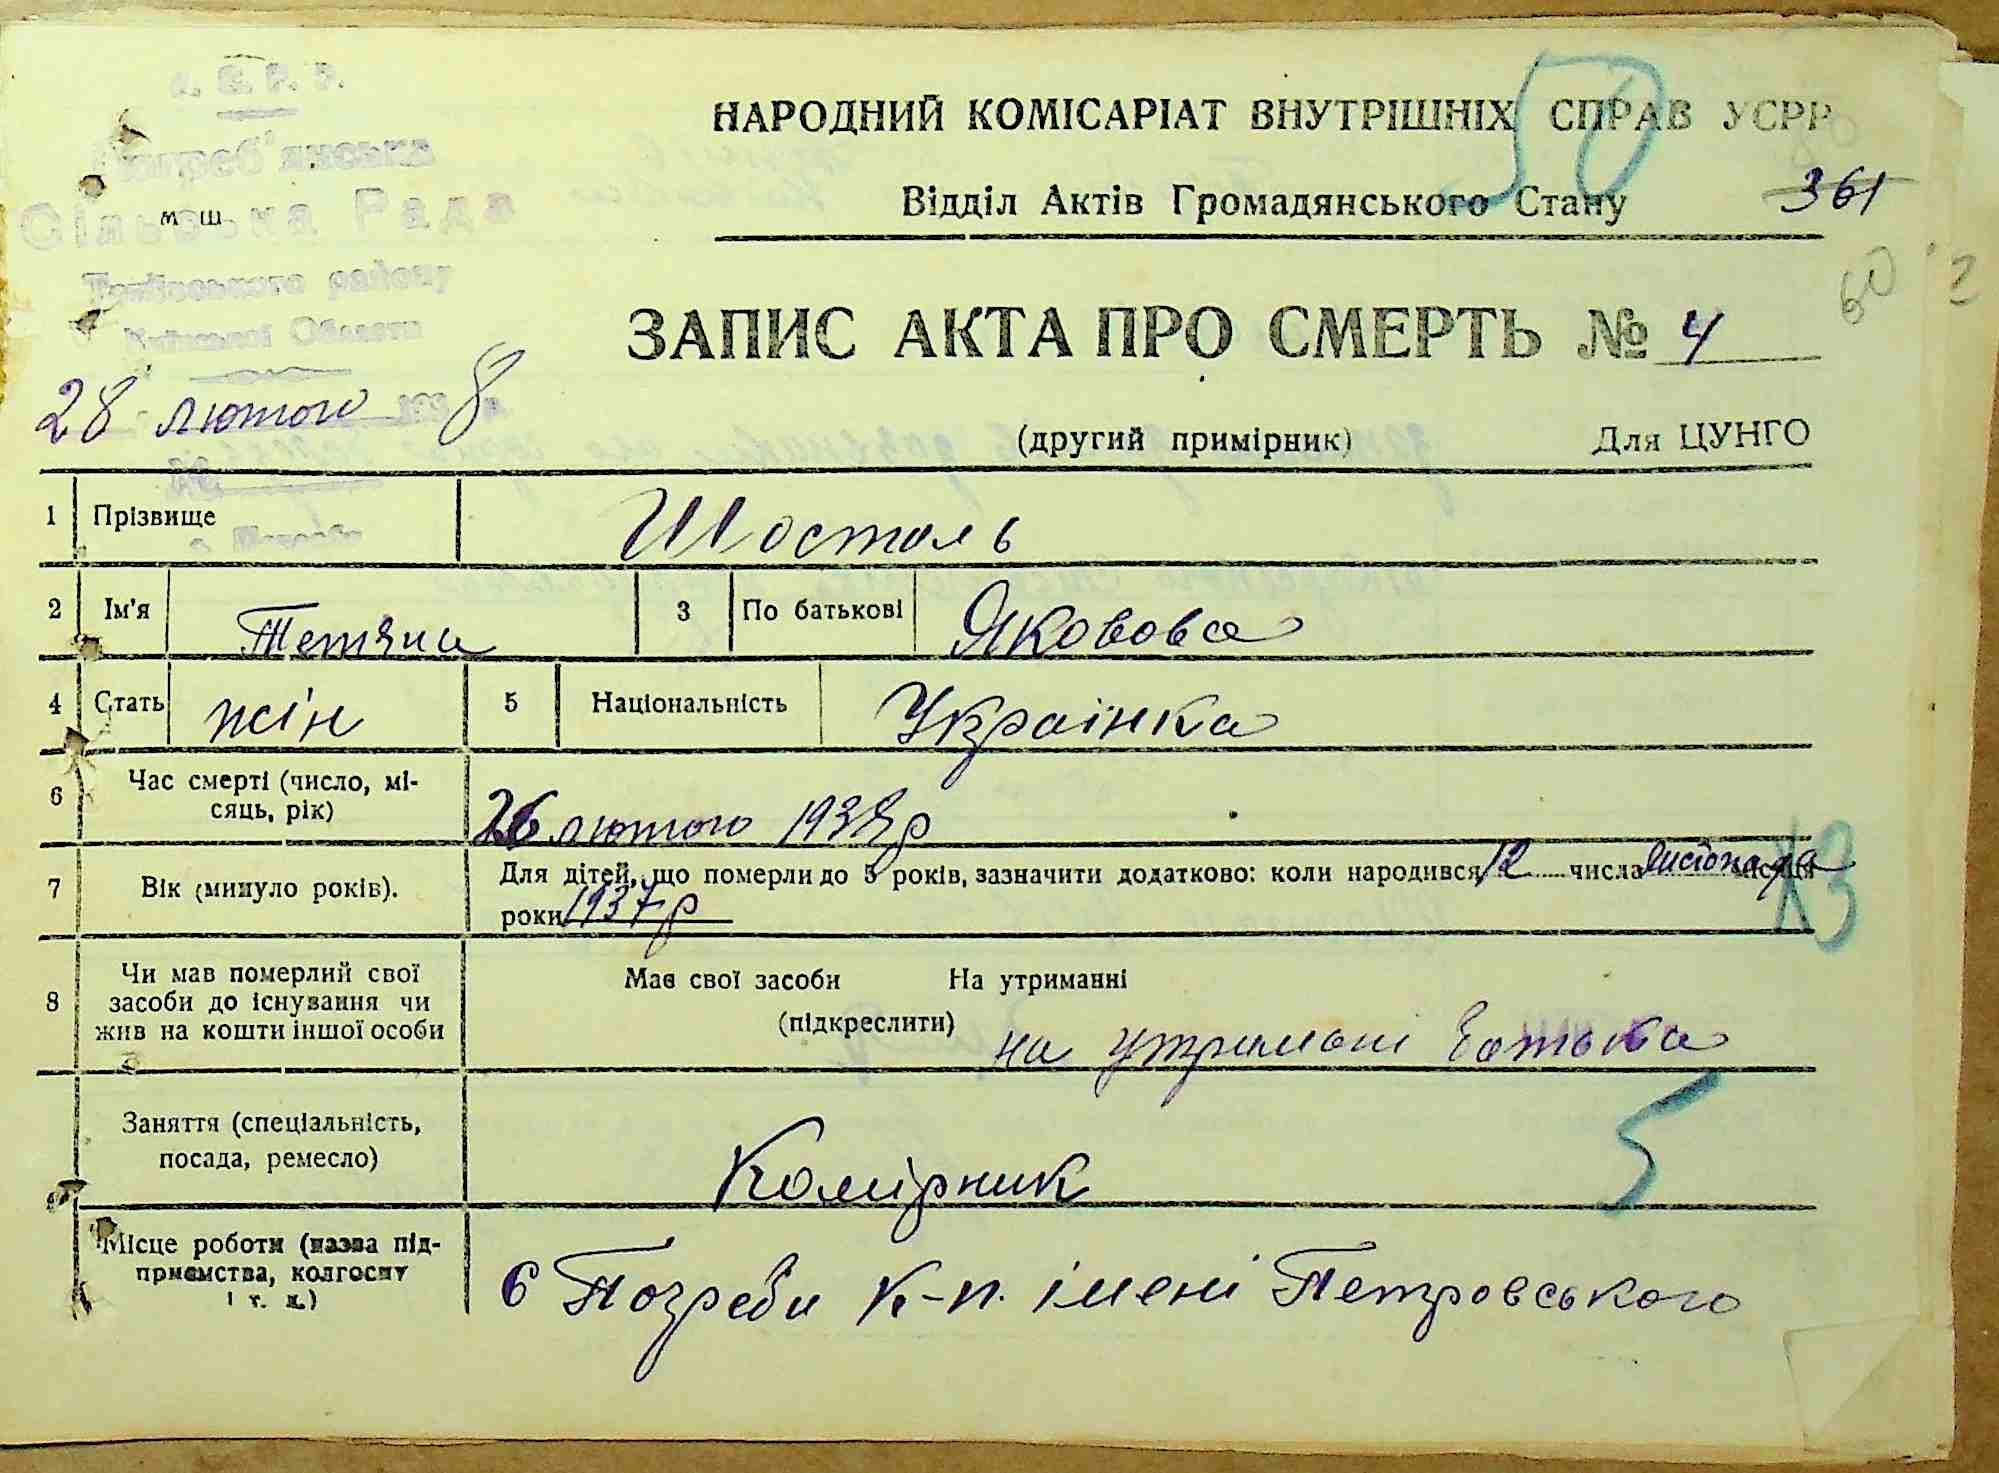 НАРОДНИЙ КОМІСАРІАТ ВНУТРІШНІХ СПРАВ УСРР
50
Відділ Актів Громадянського Стану
361
Сільська Рада
району
Області
м ш
60
ЗАПИС АКТА ПРО СМЕРТЬ № 4
28 лютого 8
(другий примірник) Для ЦУНГО
1 Прізвище Шосталь
2 Ім'я Тетяна 3 По батькові Яковова
4 Стать жін 5 Національність Українка
6 Час смерті (число, мі-
сяць, рік) 26 лютого 1938 р
7 Вік (минуло років). Для дітей, що померли до 5 років, зазначити додатково: коли народився 12 числа листопада місяця
роки 1937 р
8 Чи мав померлий свої
засоби до існування чи
жив на кошти іншої особи
Має свої засоби На утриманні
(підкреслити) на утримані батька
Заняття (спеціальність,
посада, ремесло) Комірник
5
9
Місце роботи (назва під-
приємства, колгоспу
і т. д.) в Погреби к-п. імені Петровського